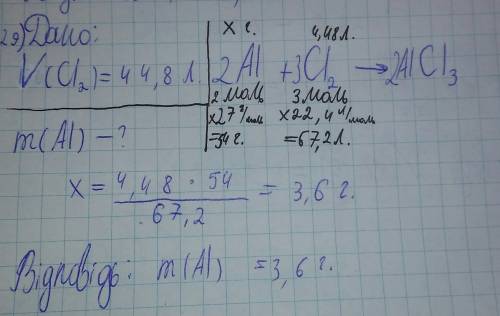 29) Дано:
V(Cl₂) = 44,8 л.
m(Al) – ?
x г. 4,48 л.
2Al + 3Cl₂ → 2AlCl₃
2 моль 3 моль
×27 г/моль ×22,4 л/моль
=54 г. =67,2 л.
x = 4,48 · 54 / 67,2 = 3,6 г.
Відповідь: m(Al) = 3,6 г.